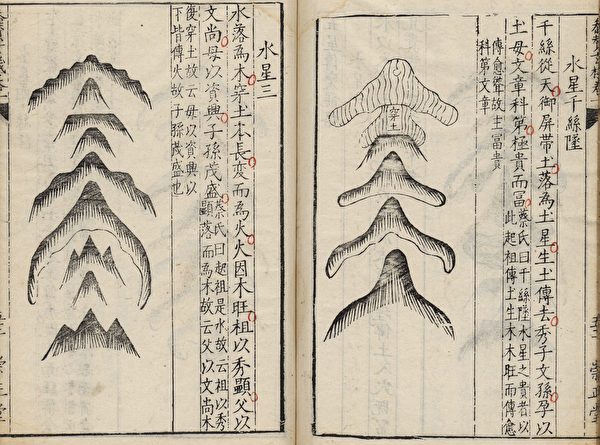 水星千絲墜
千絲從天御屏帶土落為土星生土傳去秀子文孫孕以
土毋文章科第極貴而冨蔡氏曰千絲墜水星之貴者以
此起祖傳土生木木旺而傳愈
傳愈聳故主冨貴
科第文章
穿土
水星三
水落為木穿土本長变而為火火因木旺祖以秀顯父以
文尚母以資興子孫茂盛蔡氏曰起祖是水故云祖以秀
顯落而為木故云父以文尚木
復穿土故云母以資興以
下皆傳火故子孫茂盛也